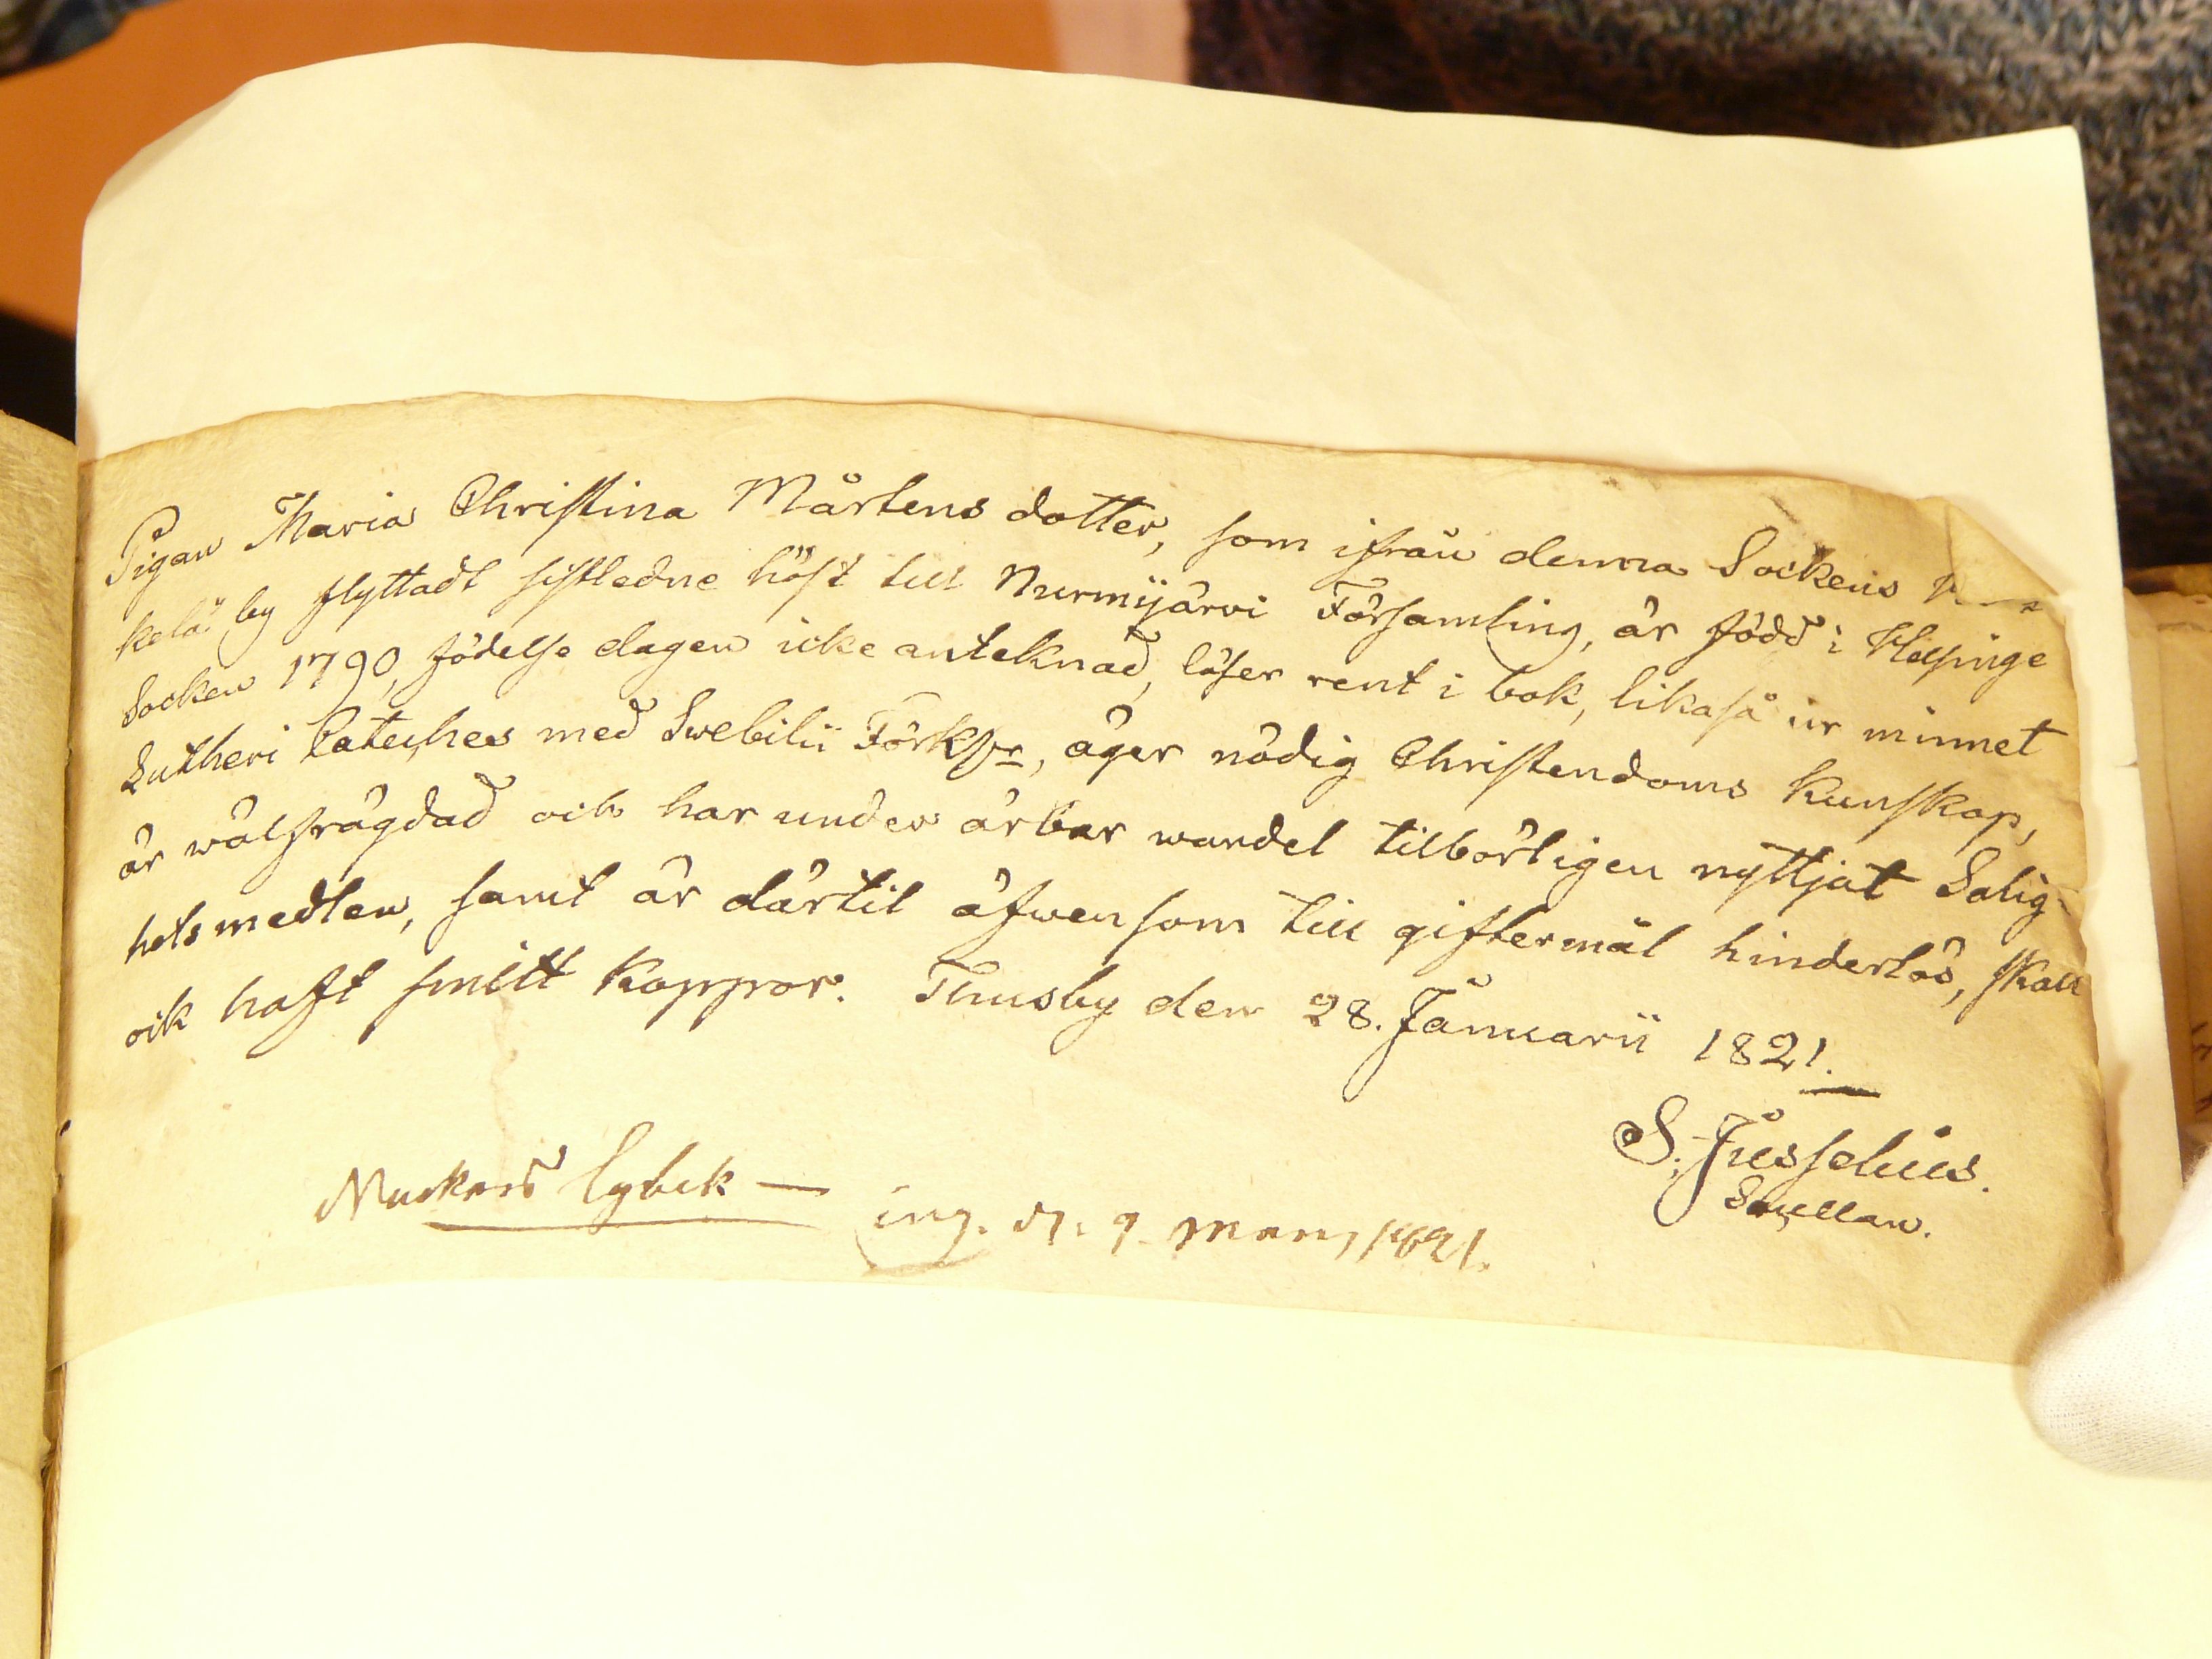 Pigan Maria Christina Mårtens dotter, som ifrån denna Sockens
kelä by flyttadt sistledne höst till Nurmijärvi Församling, är född i Helsinge
Socken 1790, födelse dagen icke anteknad, läser rent i bok, likaså ur minnet
Lutheri Cateches med Swebilii Förkl:r, äger nödig Christendoms kunskap,
är wälfrägdad och har under ärbar wandel tilbörligen nyttjat Salig-
hets medlen, samt är därtil äfwen som till giftermål hinderlös, skall
ock haft smitt koppor. Thusby den 28. Januarii 1821.
S. Jusselius.
Sacellan.
ing. d. 9 Mars 1821.